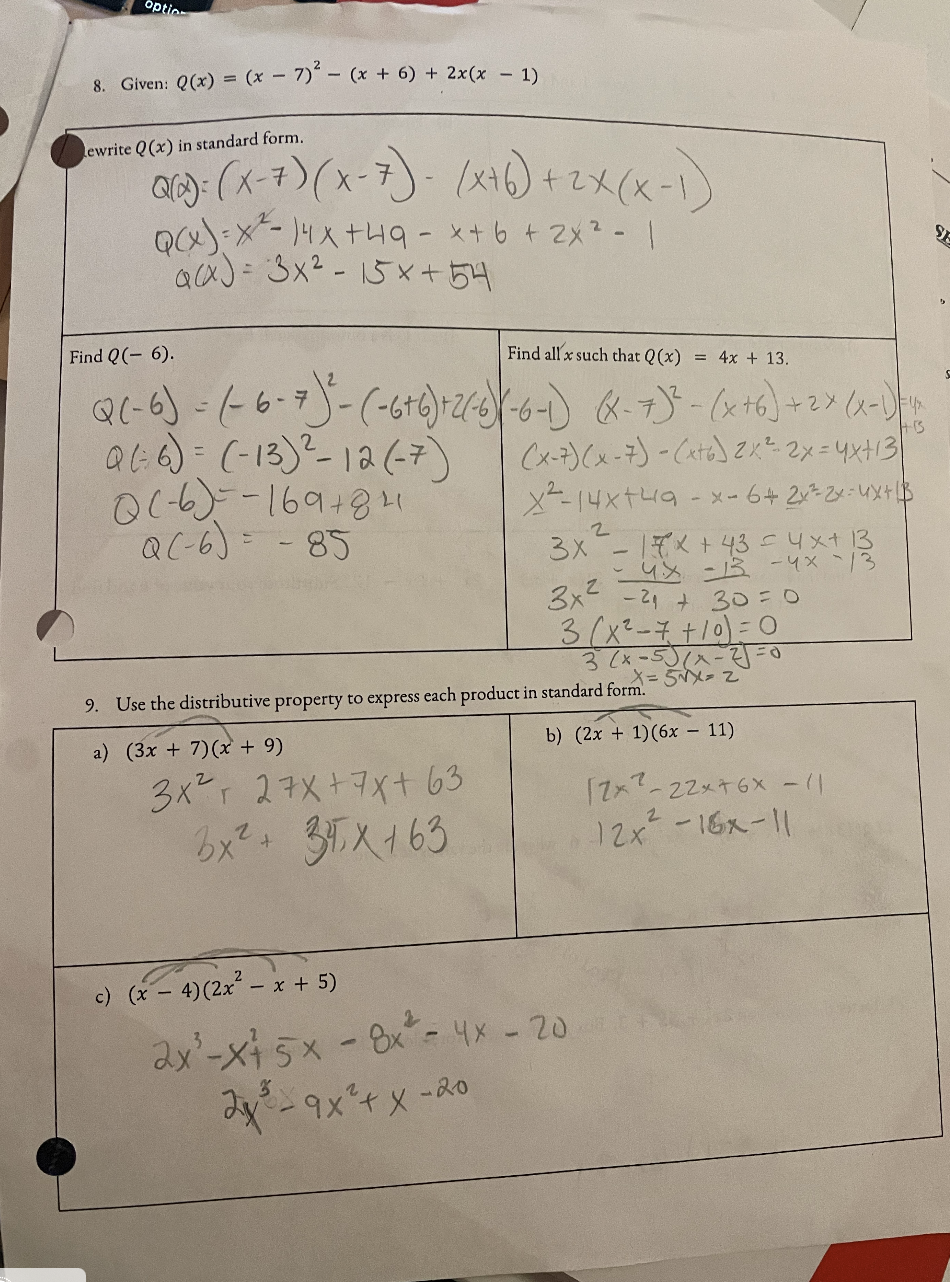 optio
8. Given: Q(x) = (x − 7)² − (x + 6) + 2x(x − 1)
ewrite Q(x) in standard form.
Q(x)=(x-7)(x-7)- (x+6)+2x(x-1)
Q(x)=x²-14x+49 - x+6 + 2x² - 1
Q(x) = 3x² - 15x+54
Find Q(− 6).
Q(-6) = (-6-7)²-(-6+6)+2(-6)(-6-1)
Q(-6) = (-13)²-12(-7)
Q(-6)= -169+84
Q(-6) = -85
Find all x such that Q(x) = 4x + 13.
(x-7)²-(x+6)+2x(x-1)=4x
+13
(x-7)(x-7)-(x+6)2x²-2x=4x+13
x²-14x+49 - x-6+2x²-2x=4x+13
3x² -17x + 43 = 4x+13
-4x -13 -4x -13
3x² -21 + 30=0
3(x²-7 +10)=0
3(x-5)(x-2)=0
x=5 x=2
9. Use the distributive property to express each product in standard form.
a) (3x + 7)(x + 9)
3x²+ 27x+7x+63
3x²+ 34x+63
b) (2x + 1)(6x − 11)
12x²-22x+6x -11
12x² -16x-11
c) (x − 4)(2x² − x + 5)
2x³-x²+5x-8x²-4x-20
2x³-9x²+x-20